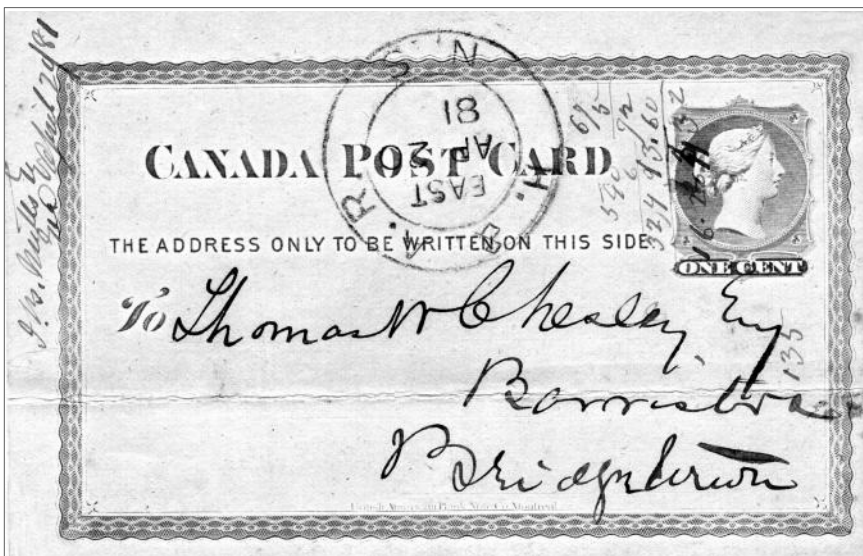 April 2d/81
H. & A. R.
N. S.
EAST
AP 2
81
CANADA POST CARD
THE ADDRESS ONLY TO BE WRITTEN ON THIS SIDE
ONE CENT
To Thomas W Chesley, Esq
Barrister
Bridgetown
135
British American Bank Note Co. Montreal